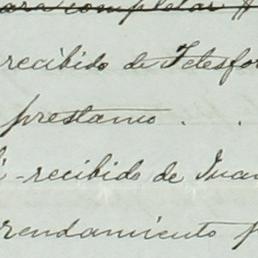 para completar
recibido de Telesfor
prestamo . .
recibido de Juan
rendamiento p